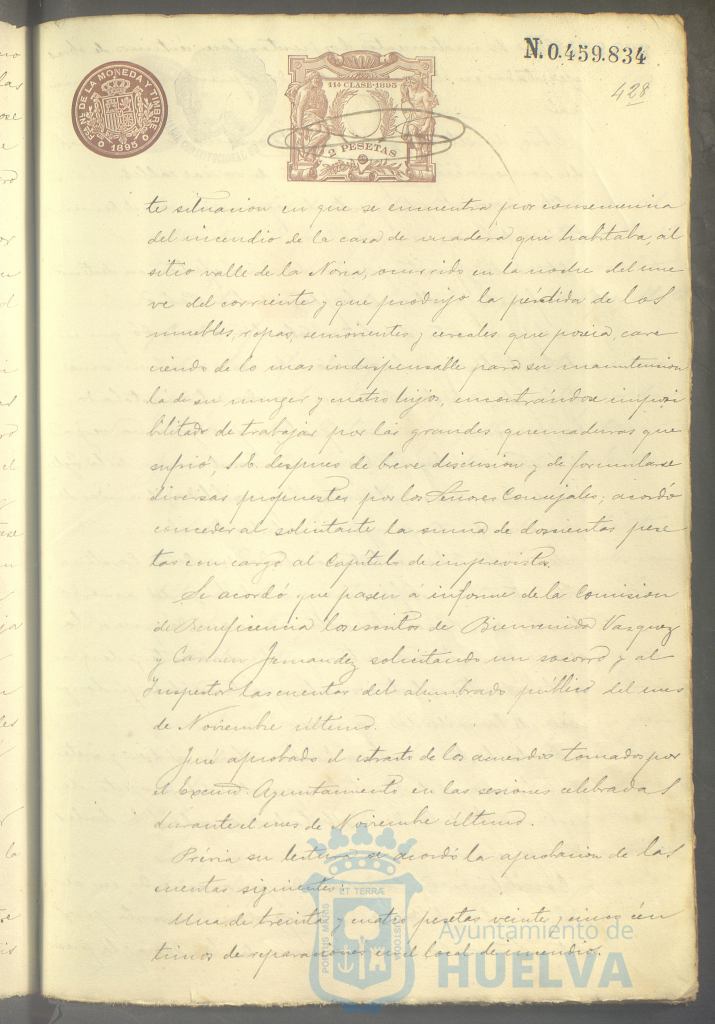 N.0.459.834
428
FCA. NAL. DE LA MONEDA Y TIMBRE
1895
11ª CLASE-1895
2 PESETAS
te situacion en que se encuentra por consecuencia
del incendio de la casa de madera que habitaba, al
sitio valle de la Noria, ocurrido en la noche del nue
ve del corriente y que produjo la pérdida de los
muebles, ropas, semovientes y cereales que poseia, care
ciendo de lo mas indispensable para su manutencion
la de su muger y cuatro hijos, encontrándose imposi
bilitado de trabajar por las grandes quemaduras que
sufrió, S. E. despues de breve discusion y de formularse
diversas propuestas por los Señores Concejales; acordó
conceder al solicitante la suma de doscientas pese
tas con cargo al capítulo de imprevistos.
Se acordó que pasen á informe de la Comision
de Beneficencia los escritos de Bienvenida Vazquez
y Carmen Fernandez solicitando un socorro y al
Inspector las cuentas del alumbrado público del mes
de Noviembre último.
Fué aprobado el estracto de los acuerdos tomados por
el Excmo. Ayuntamiento en las sesiones celebradas
durante el mes de Noviembre último.
Prévia su lectura se acordó la aprobacion de las
cuentas siguientes:
Una de treinta y cuatro pesetas veinte y cinco cén
timos de reparaciones en el local de incendio.
ET TERRÆ
PORTUS MARIS
CUSTODIA
Ayuntamiento de
HUELVA